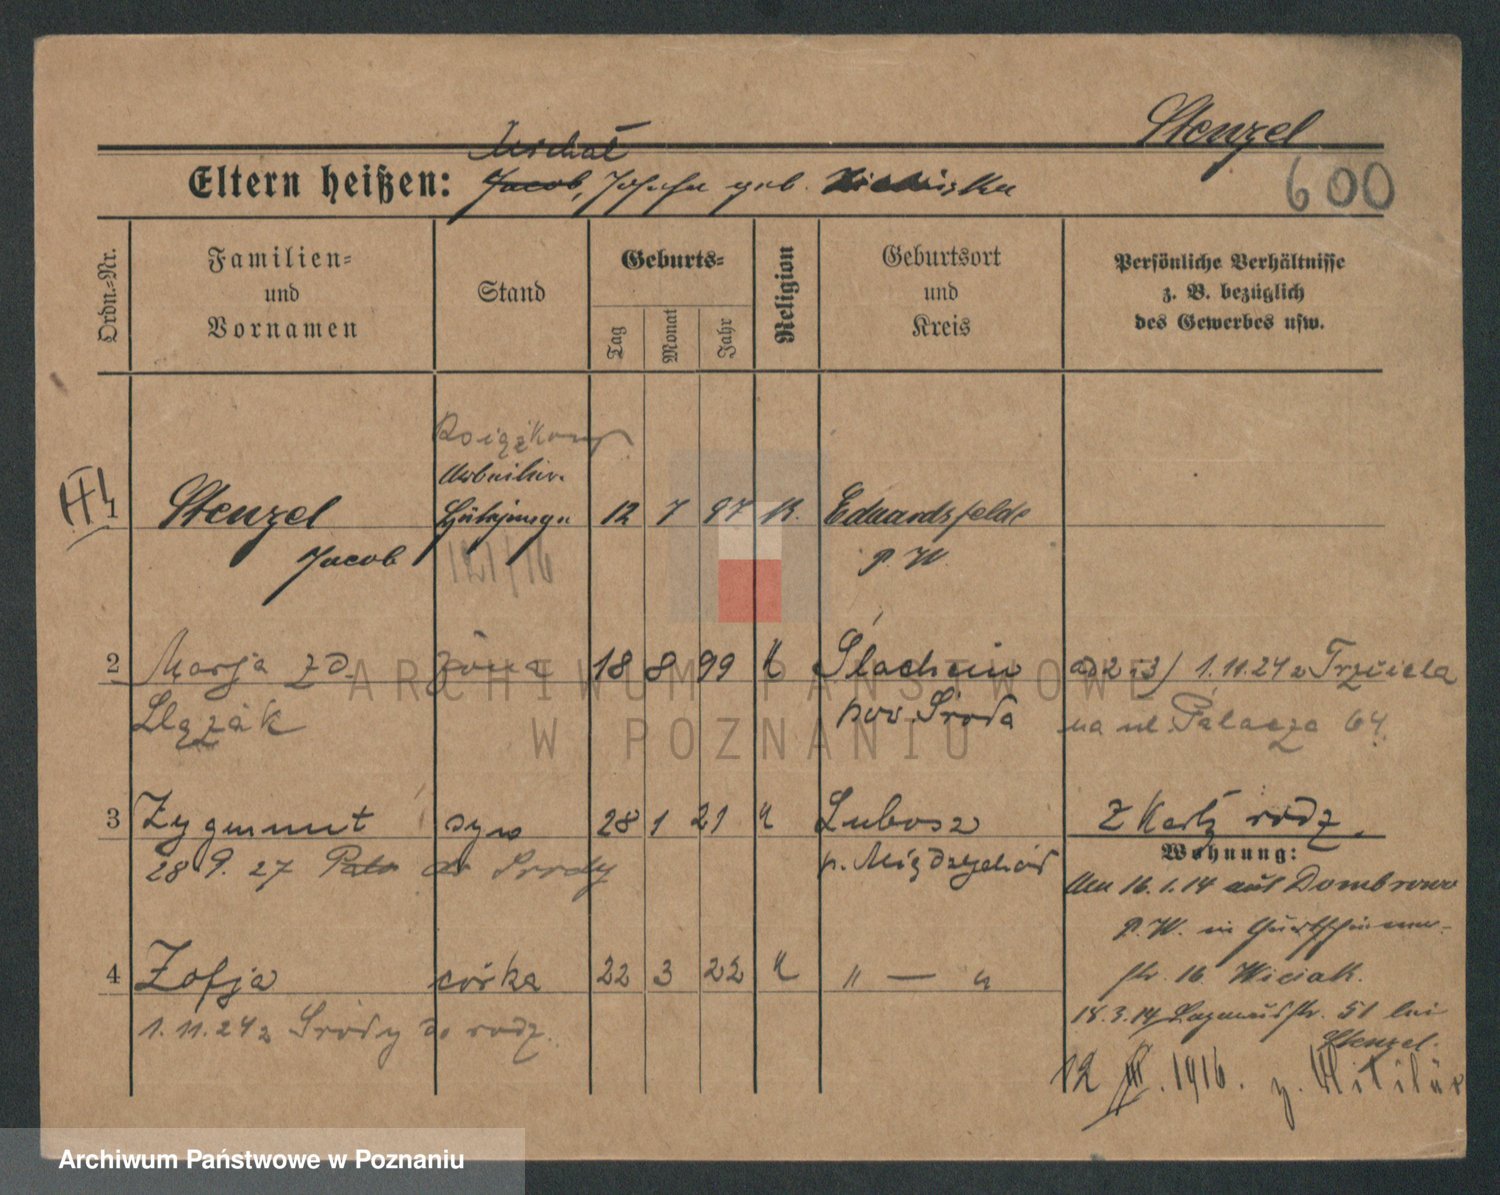 Stenzel
600
Michał
Eltern heißen: Jacob, Josefa geb.
Ordn.-Nr.
Familien-
und
Vornamen
Stand
Geburts-
Tag
Monat
Jahr
Religion
Geburtsort
und
Kreis
Persönliche Verhältnisse
z. B. bezüglich
des Gewerbes usw.
Książkowy
Arbeiter
1 Stenzel 12 7 97 K. Eduardsfelde
Jacob 121/16 P. W.
2 Marja zd. żona 18 8 99 K Ślachcin ad 2 i 3) 1.11.24 z Trzciela
Ślązak pow. Środa na ul. Palacza 64.
3 Zygmunt syn 28 1 21 K Lubosz z Kart rodz.
28 9. 27 do Środy p. Międzychód
Wohnung:
Am 16.1.14 aus Dombrowo
P. W. in
str. 16 Wiciak.
4 Zofja córka 22 3 22 K " — "
1.11.24 z Środy do rodz.
18.3.14 str. 51 bei
Stenzel.
12 III. 1916. z. Militär
ARCHIWUM PAŃSTWOWE
W POZNANIU
Archiwum Państwowe w Poznaniu